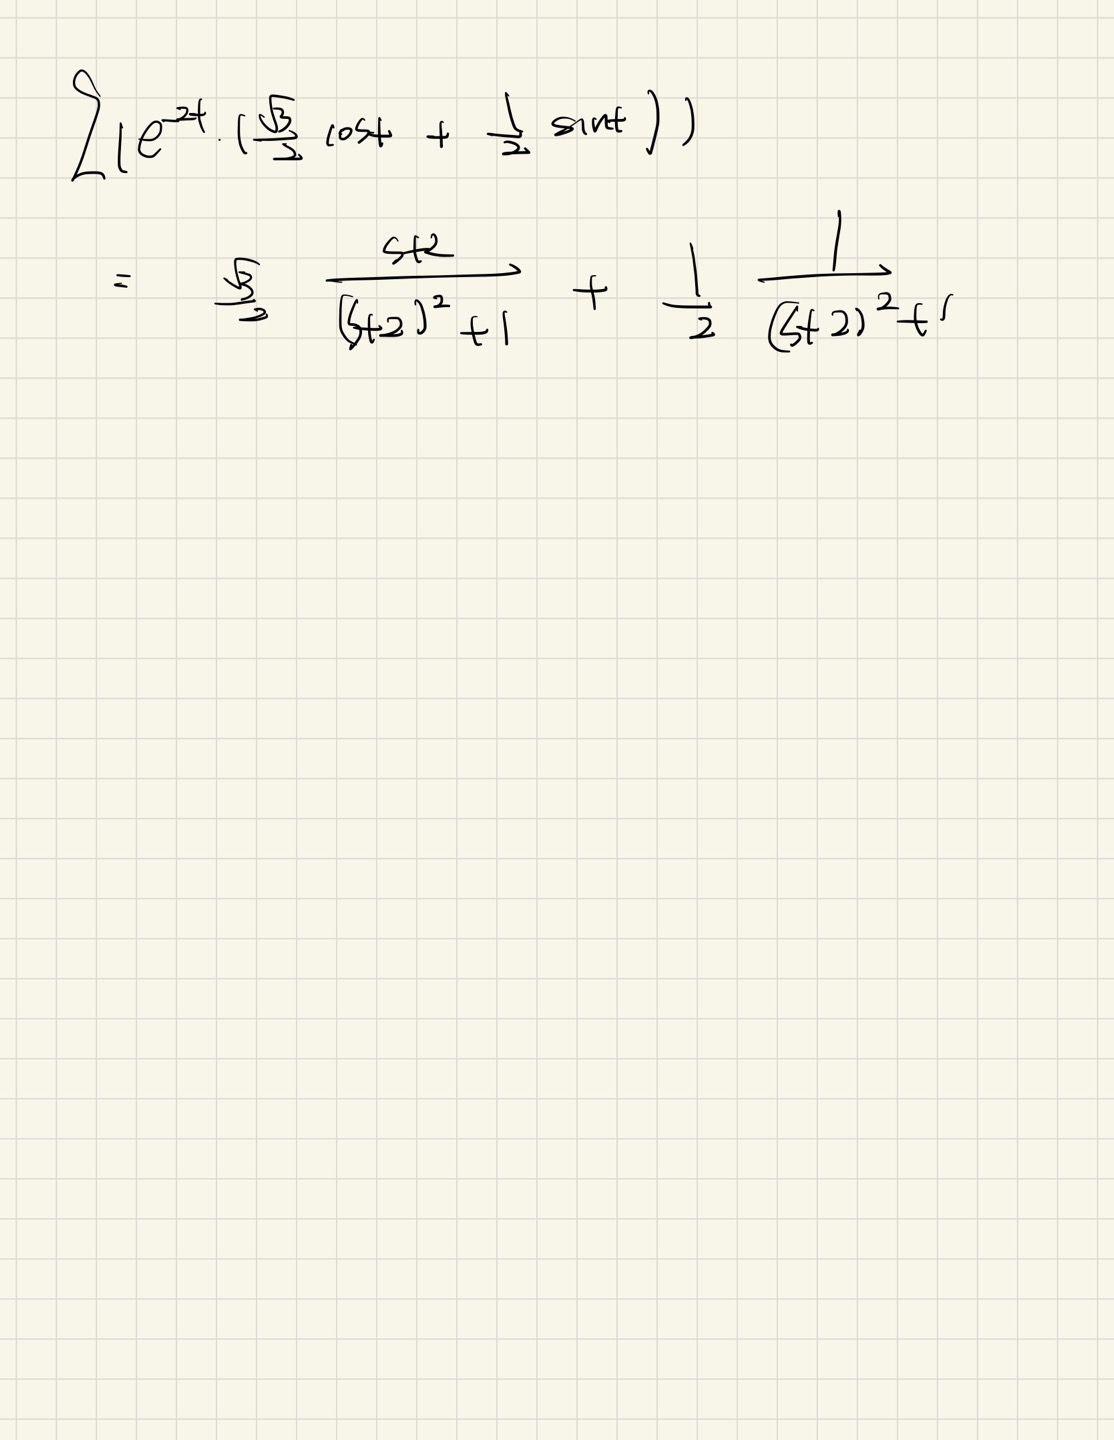 ℒ(e^{-2t}·(√3/2 cost + 1/2 sint))
= √3/2 (s+2)/((s+2)²+1) + 1/2 1/((s+2)²+1)